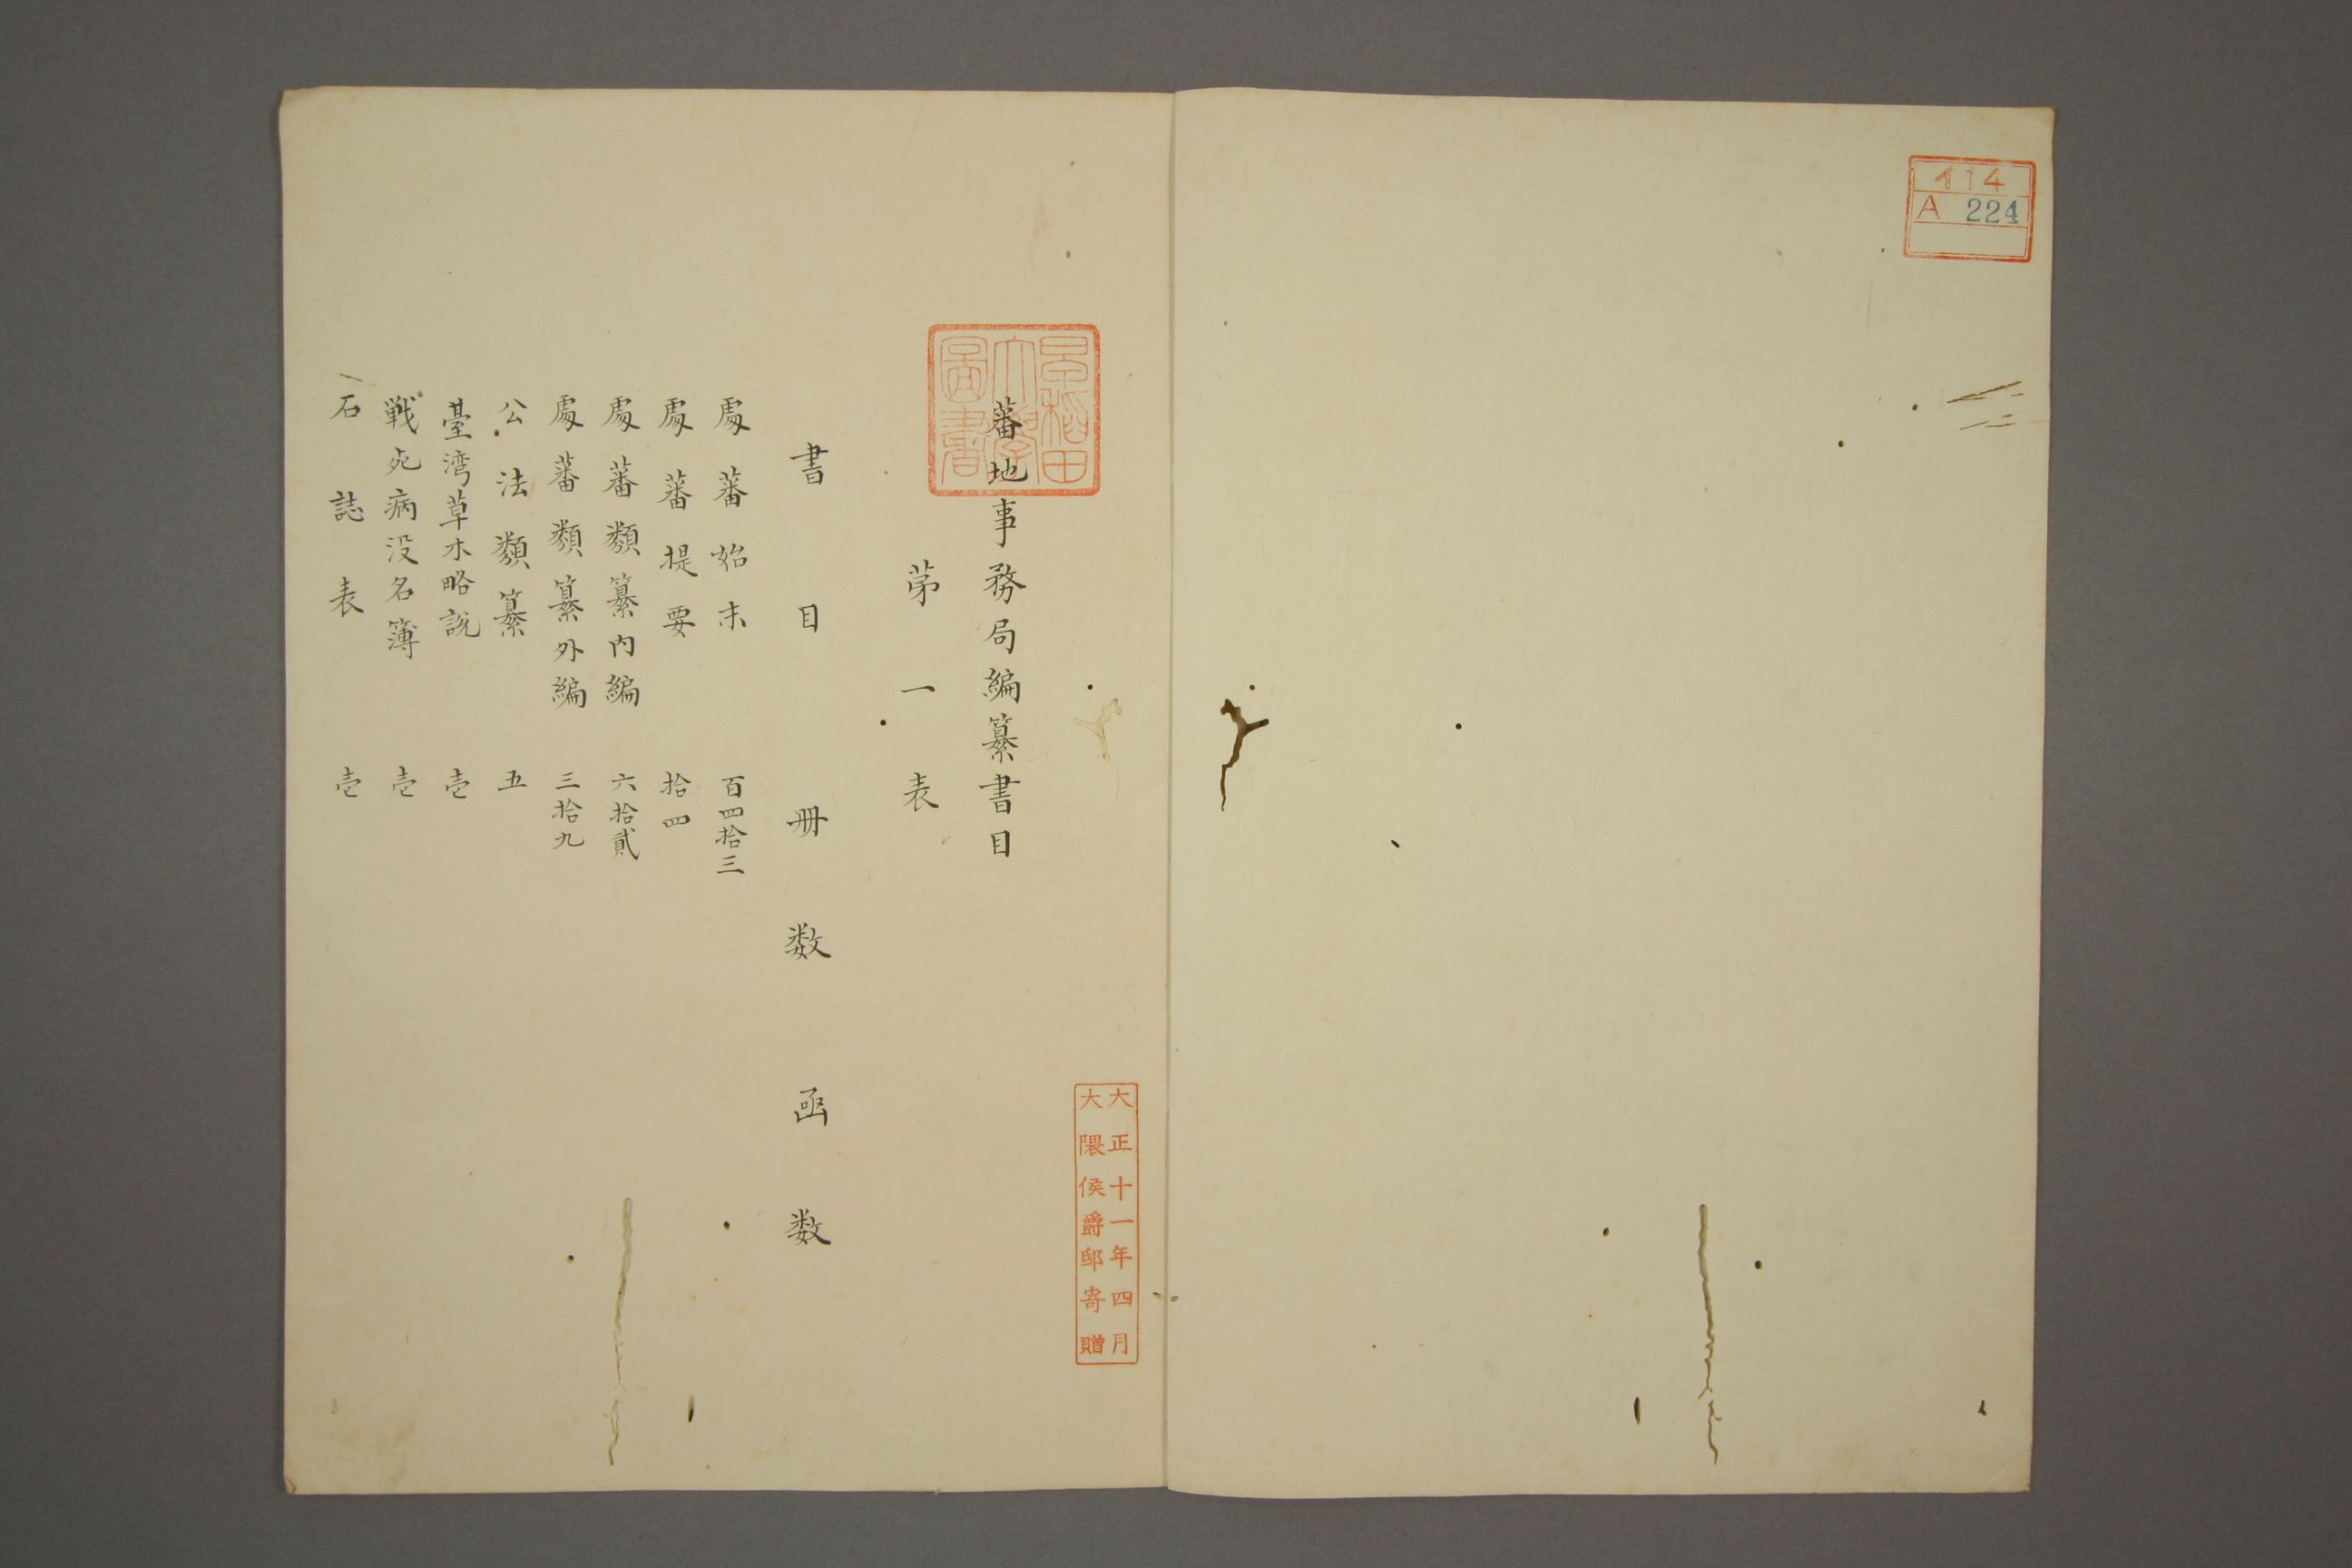 114
A 224
大正十一年四月
大隈侯爵邸寄贈
早稲田
大学
圖書
蕃地事務局編纂書目
苐一表
書目 冊数 凾数
処蕃始末 百四拾三
処蕃提要 拾四
処蕃類纂内編 六拾貳
処蕃類纂外編 三拾九
公法類纂 五
臺湾草木略説 壱
戦死病没名簿 壱
石誌表 壱